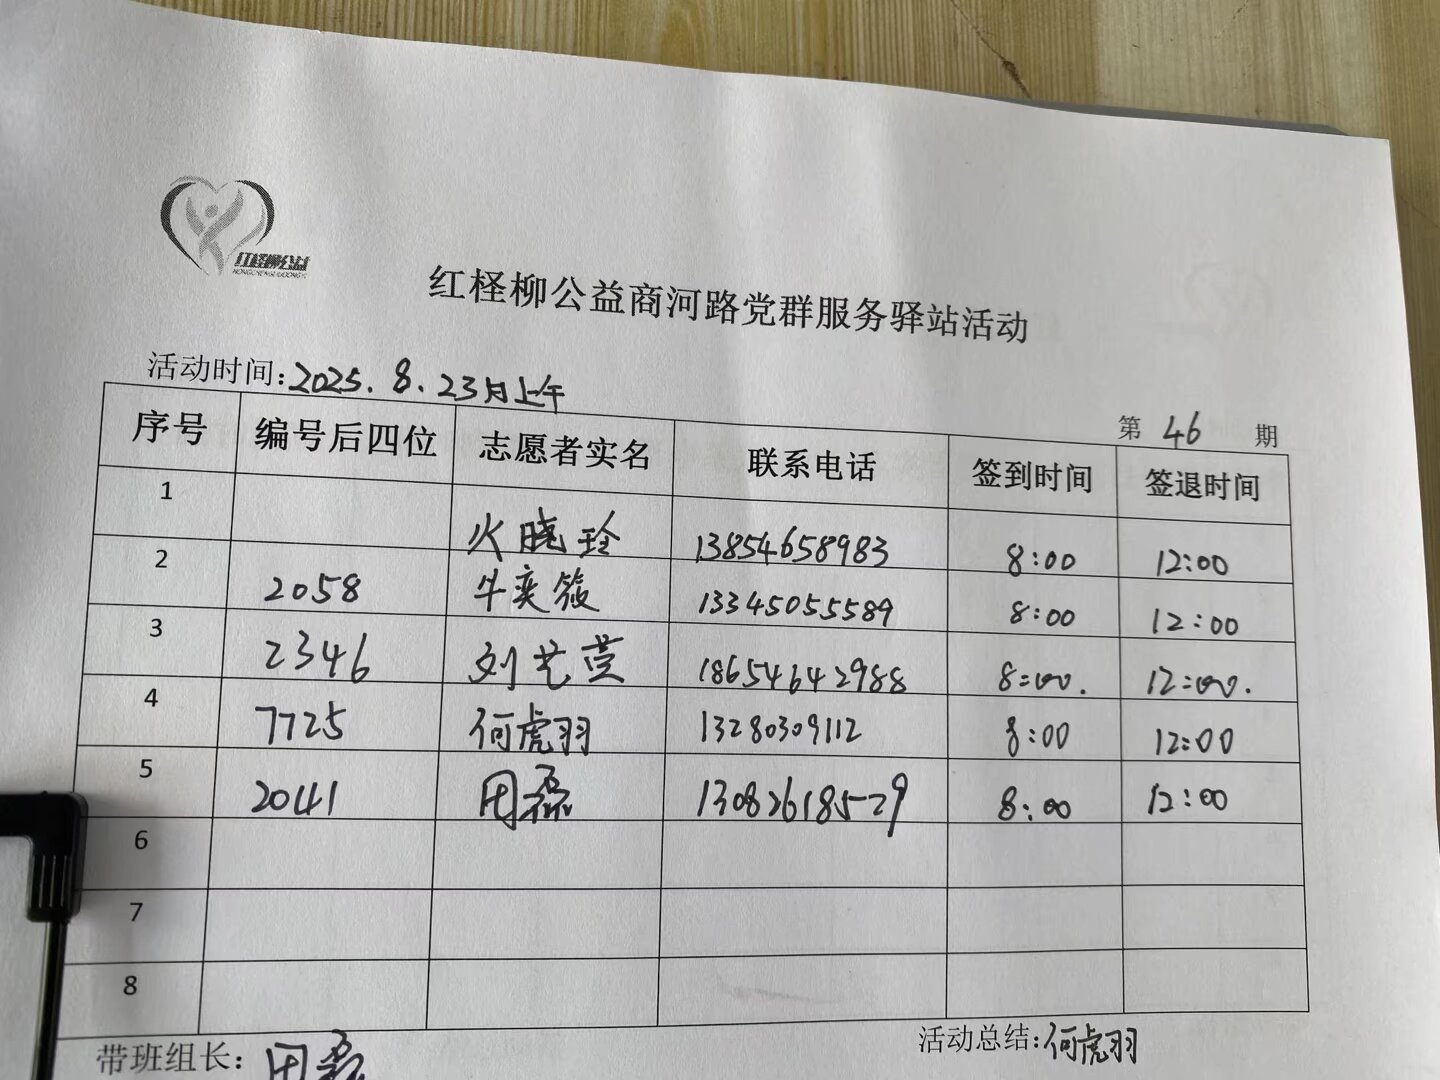 红柽柳公益
红柽柳公益商河路党群服务驿站活动
活动时间:2025.8.23月上午
第 46 期
序号 编号后四位 志愿者实名 联系电话 签到时间 签退时间
1 火晓玲 13854658983 8:00 12:00
2 2058 牛奕筱 13345055589 8:00 12:00
3 2346 刘艺莹 18654642988 8:00. 12:00.
4 7725 何虎羽 13280309112 8:00 12:00
5 2041 田磊 13082618529 8:00 12:00
6
7
8
带班组长: 田磊
活动总结:何虎羽